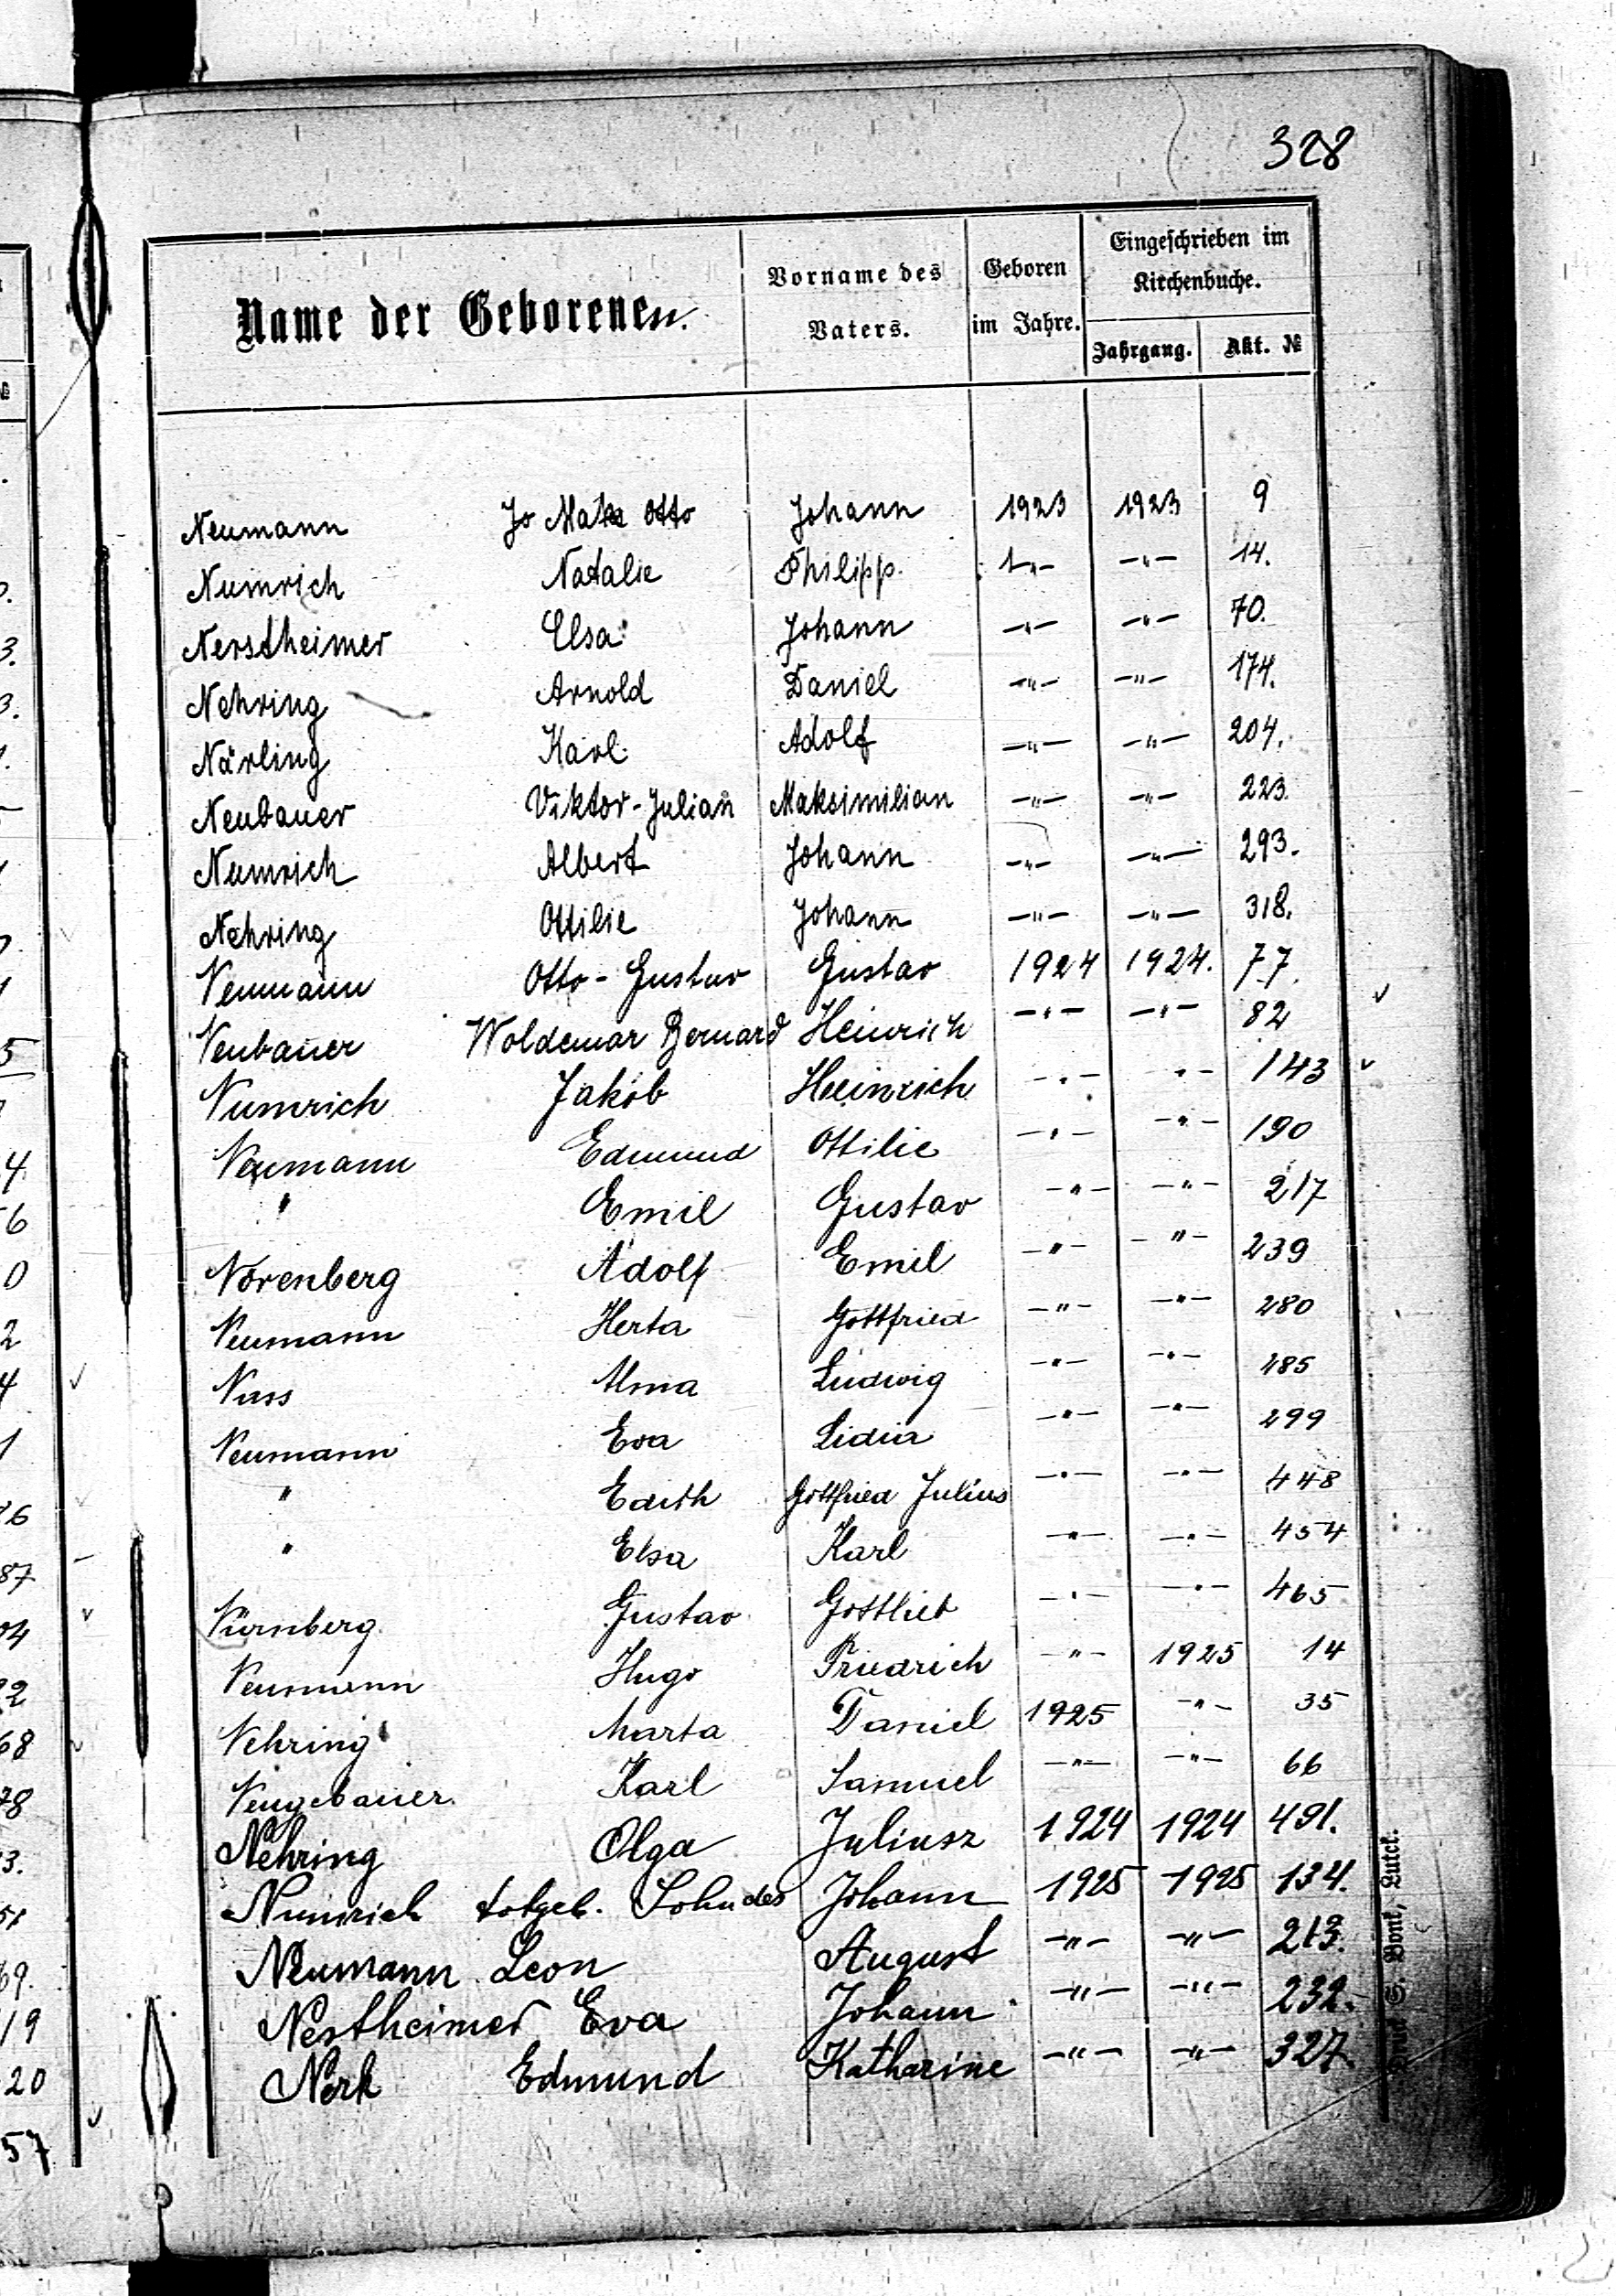 328
Name der Geborenen. Vorname des Vaters. Geboren im Jahre. Eingeschrieben im Kirchenbuche. Jahrgang. Akt. №
Neumann Otto Johann 1923 1923 9
Numrich Natalie Philipp. -"- -"- 14.
Nerstheimer Elsa Johann -"- -"- 70.
Nehring Arnold Daniel -"- -"- 174.
Närling Karl Adolf -"- -"- 204.
Neubauer Viktor-Julian Maksimilian -"- -"- 223.
Numrich Albert Johann -"- -"- 293.
Nehring Ottilie Johann -"- -"- 318.
Neumann Otto-Gustav Gustav 1924 1924. 77.
Neubauer Woldemar Bernard Heinrich -"- -"- 82
Numrich Jakob Heinrich -"- -"- 143
Neumann Edmund Ottilie -"- -"- 190
" Emil Gustav -"- -"- 217
Norenberg Adolf Emil -"- -"- 239
Neumann Herta Gottfried -"- -"- 280
Nuss Alma Ludwig -"- -"- 285
Neumann Eva Lidia -"- -"- 299
" Edith Gottfried Julius -"- -"- 448
" Elsa Karl -"- -"- 454
Nürnberg. Gustav Gottlieb -"- -"- 465
Neumann Hugo Friedrich -"- 1925 14
Nehring Marta Daniel 1925 -"- 35
Neugebauer. Karl Samuel -"- -"- 66
Nehring Olga Juliusz 1924 1924 491.
Numrich totgeb. Sohn des Johann 1925 1925 134.
Neumann Leon August -"- -"- 213.
Nestheimer Eva Johann -"- -"- 232.
Nerk Edmund Katharine -"- -"- 327.
Bont, Lutck.